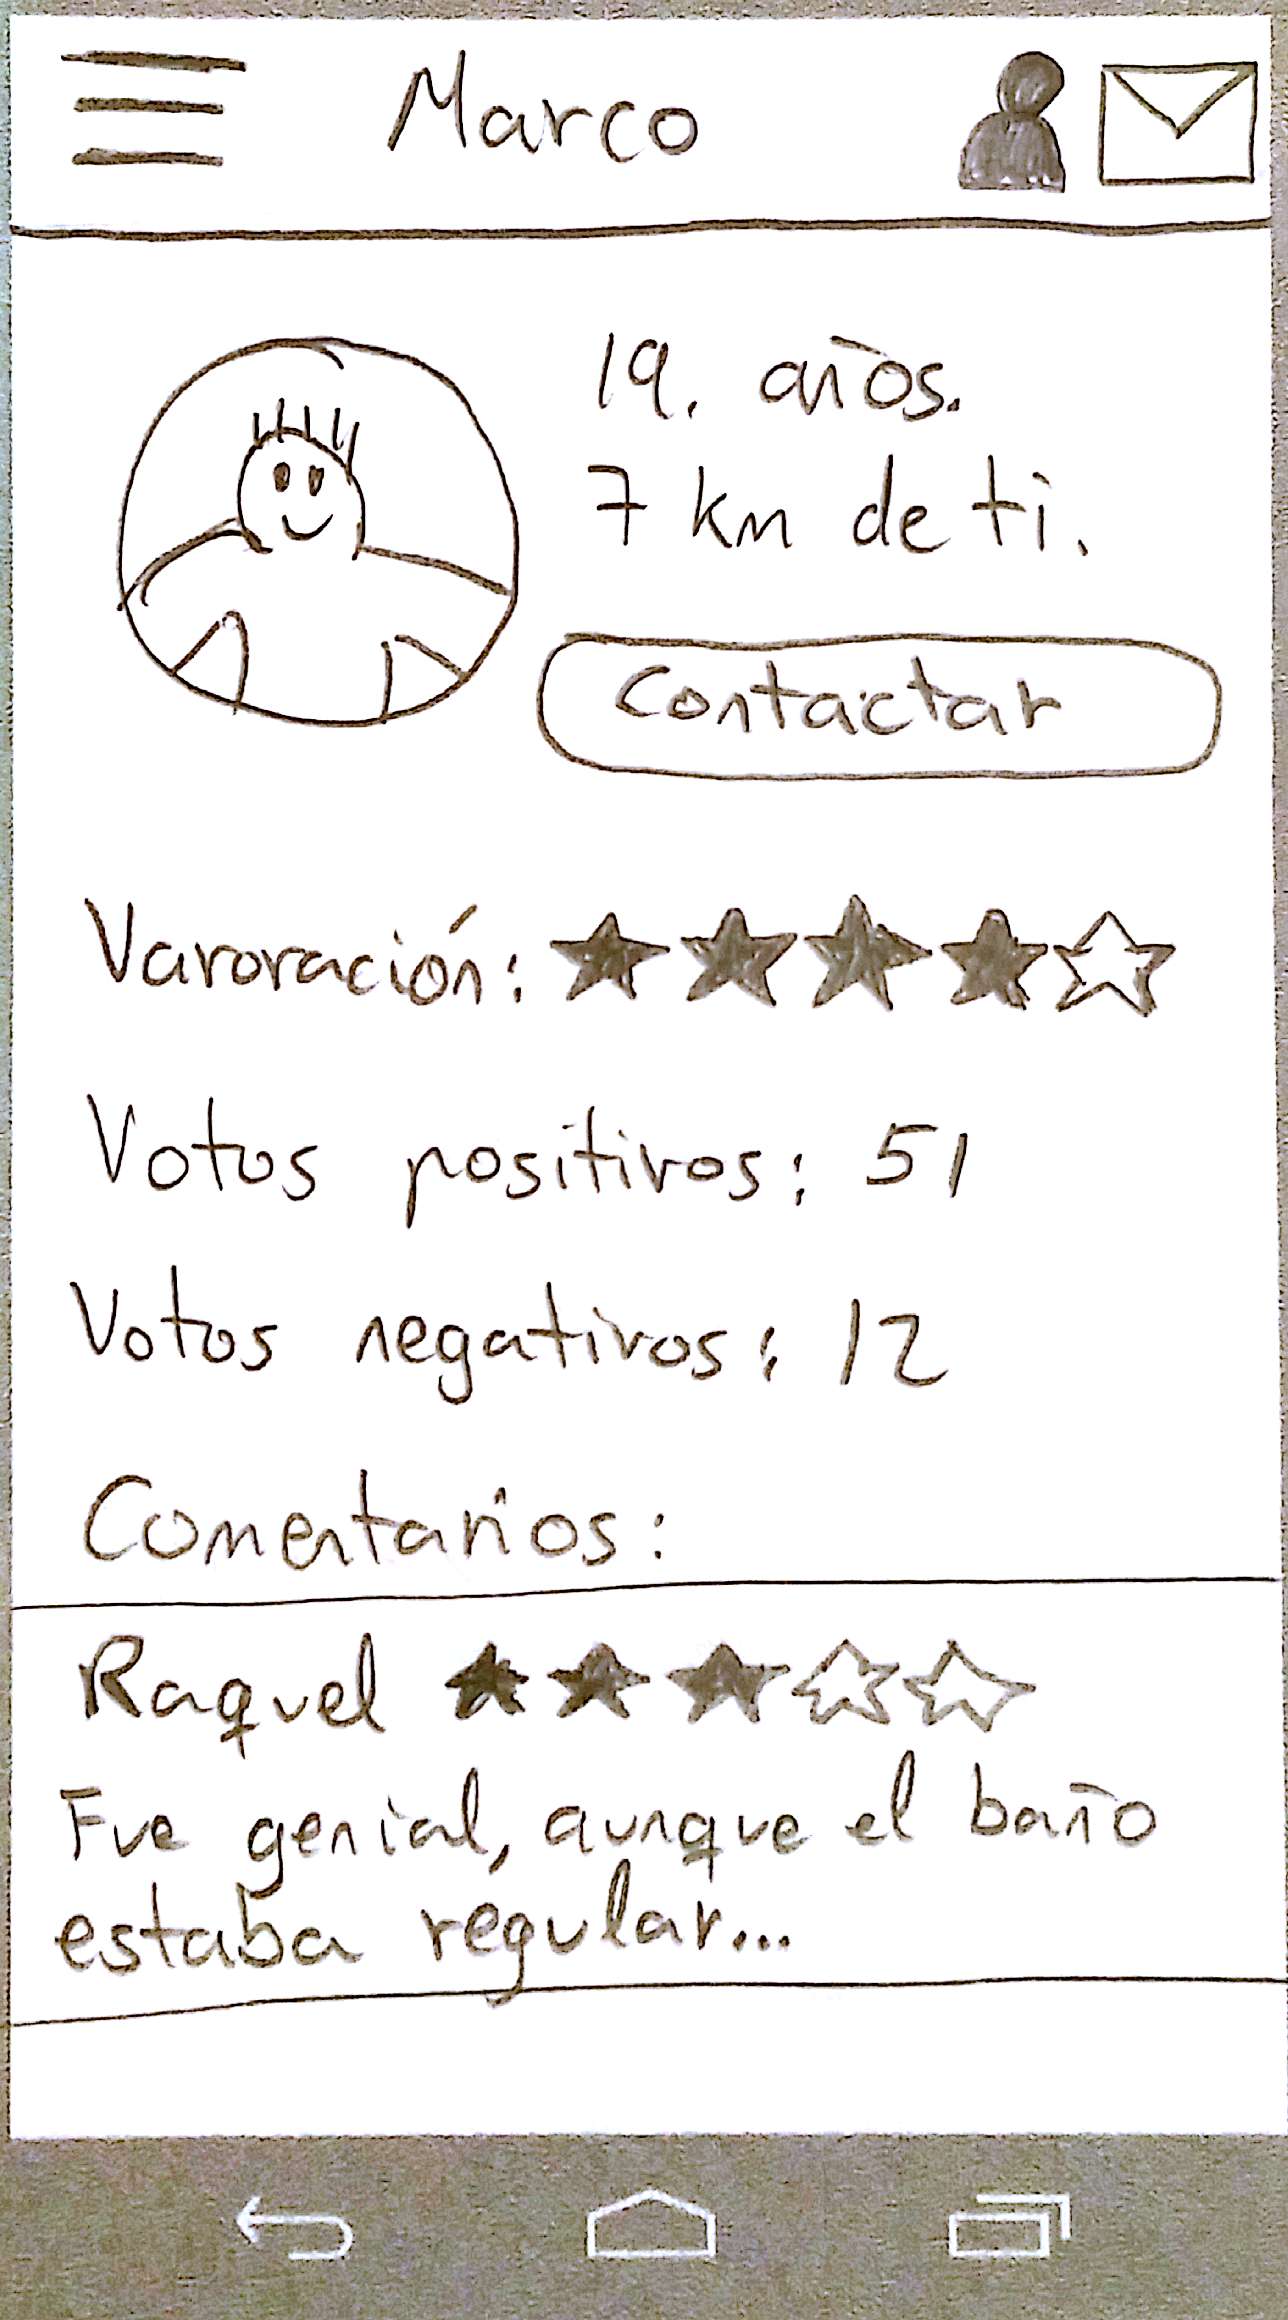 Marco
19. años.
7 km de ti.
Contactar
Varoración:
Votos positivos: 51
Votos negativos: 12
Comentarios:
Raquel
Fue genial, aunque el baño
estaba regular...